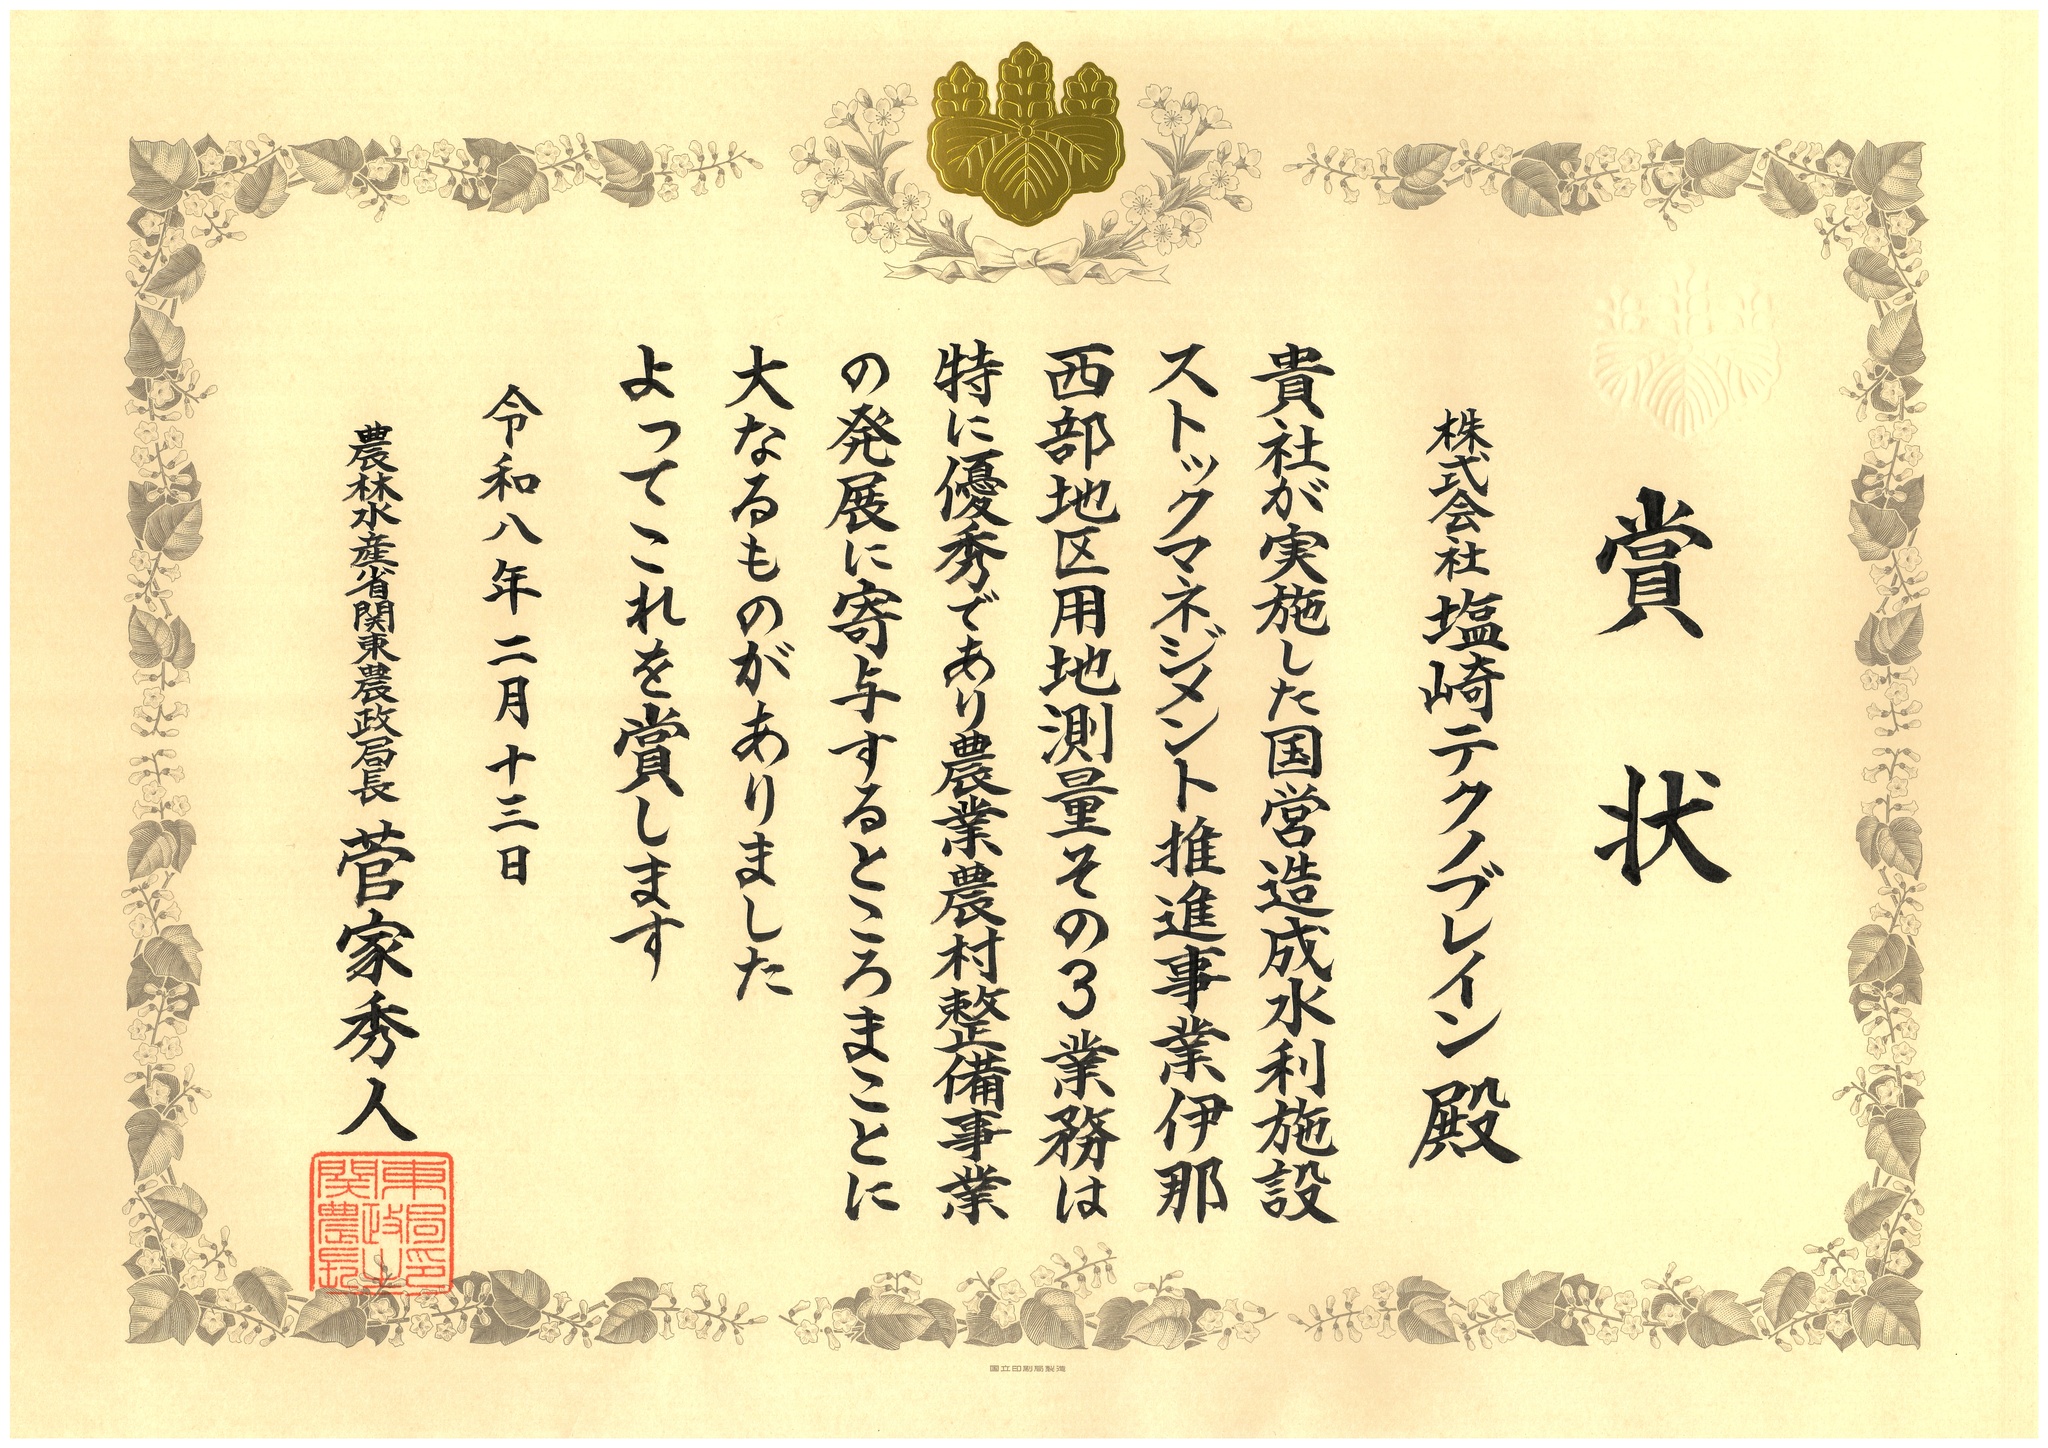 賞状
株式会社塩崎テクノブレイン殿
貴社が実施した国営造成水利施設
ストックマネジメント推進事業伊那
西部地区用地測量その3業務は
特に優秀であり農業農村整備事業
の発展に寄与するところまことに
大なるものがありました
よってこれを賞します
令和八年二月十三日
農林水産省関東農政局長 菅家秀人
関東農政局長之印
国立印刷局製造